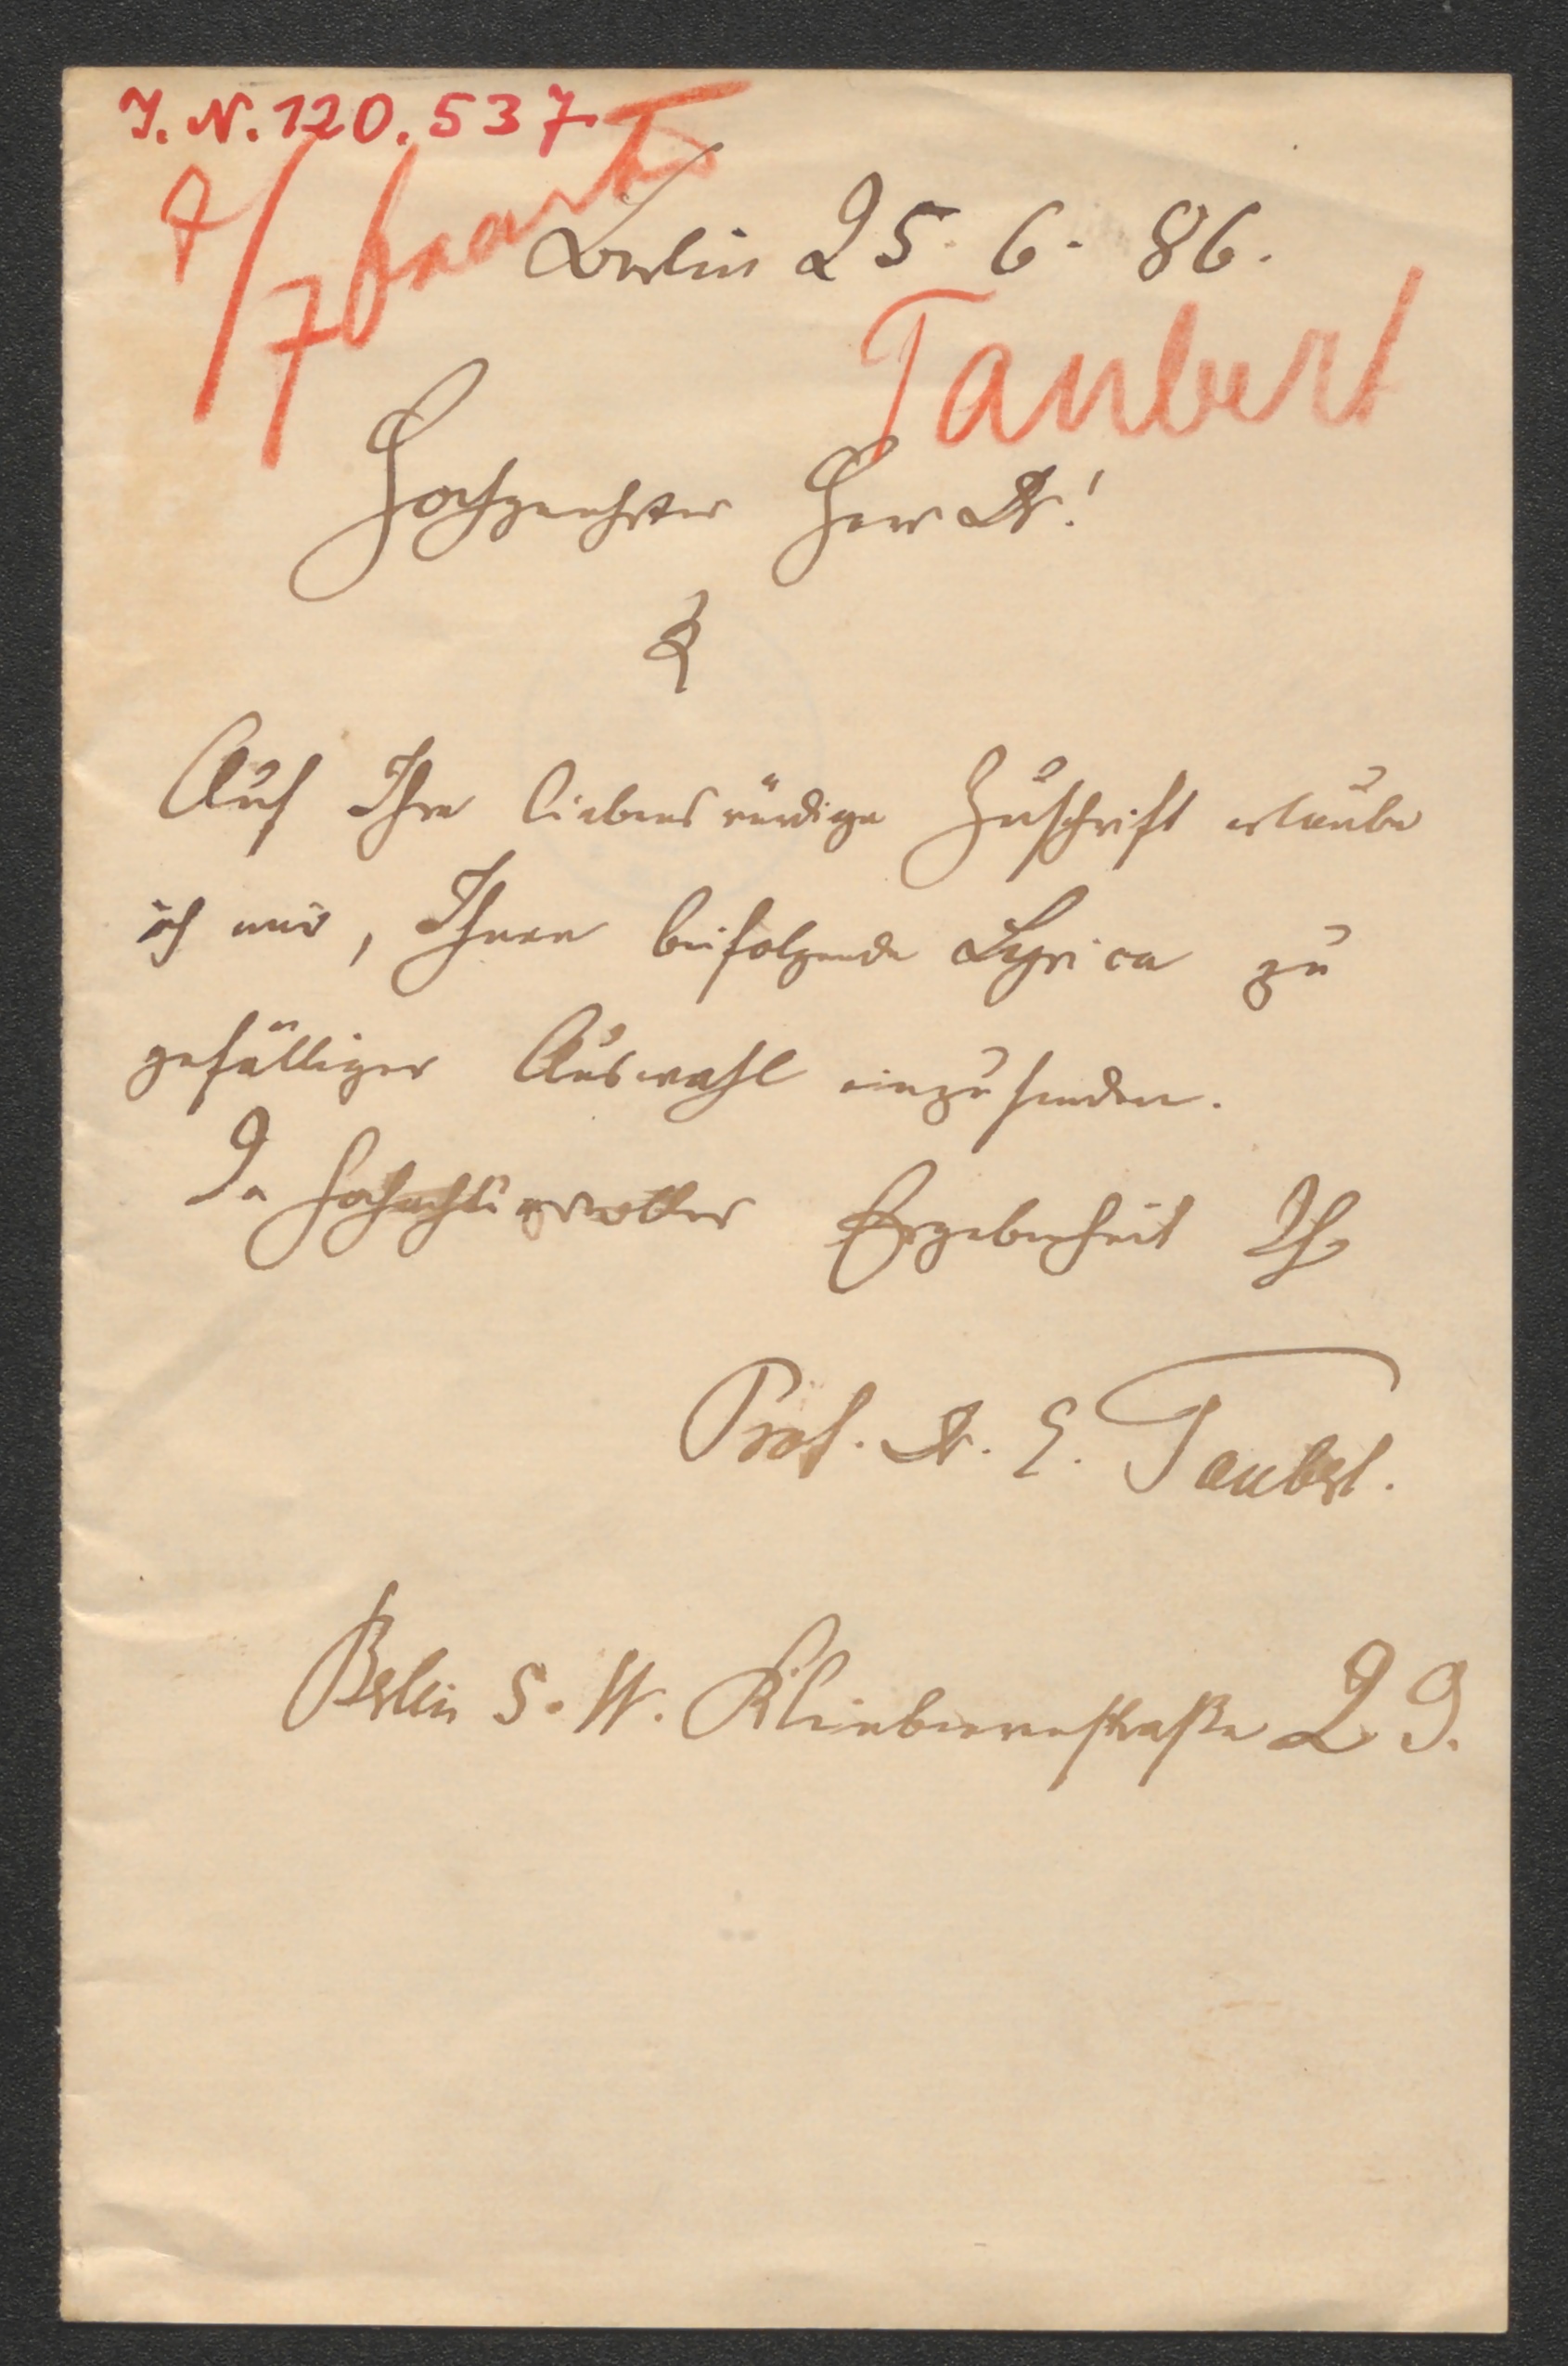 I. N. 120.537
8/7 beant
Berlin 25. 6. 86.
Taubert
Hochgeehrter Herr Dr.!
Auf Ihre liebenswürdige Zuschrift erlaube
ich mir, Ihnen beifolgende Lyrica zu
gefälliger Auswahl einzusenden.
In hochachtungsvoller Ergebenheit Ihr
Prof. Dr. E. Taubert.
Berlin S. W. Kleinbeerenstraße 29.